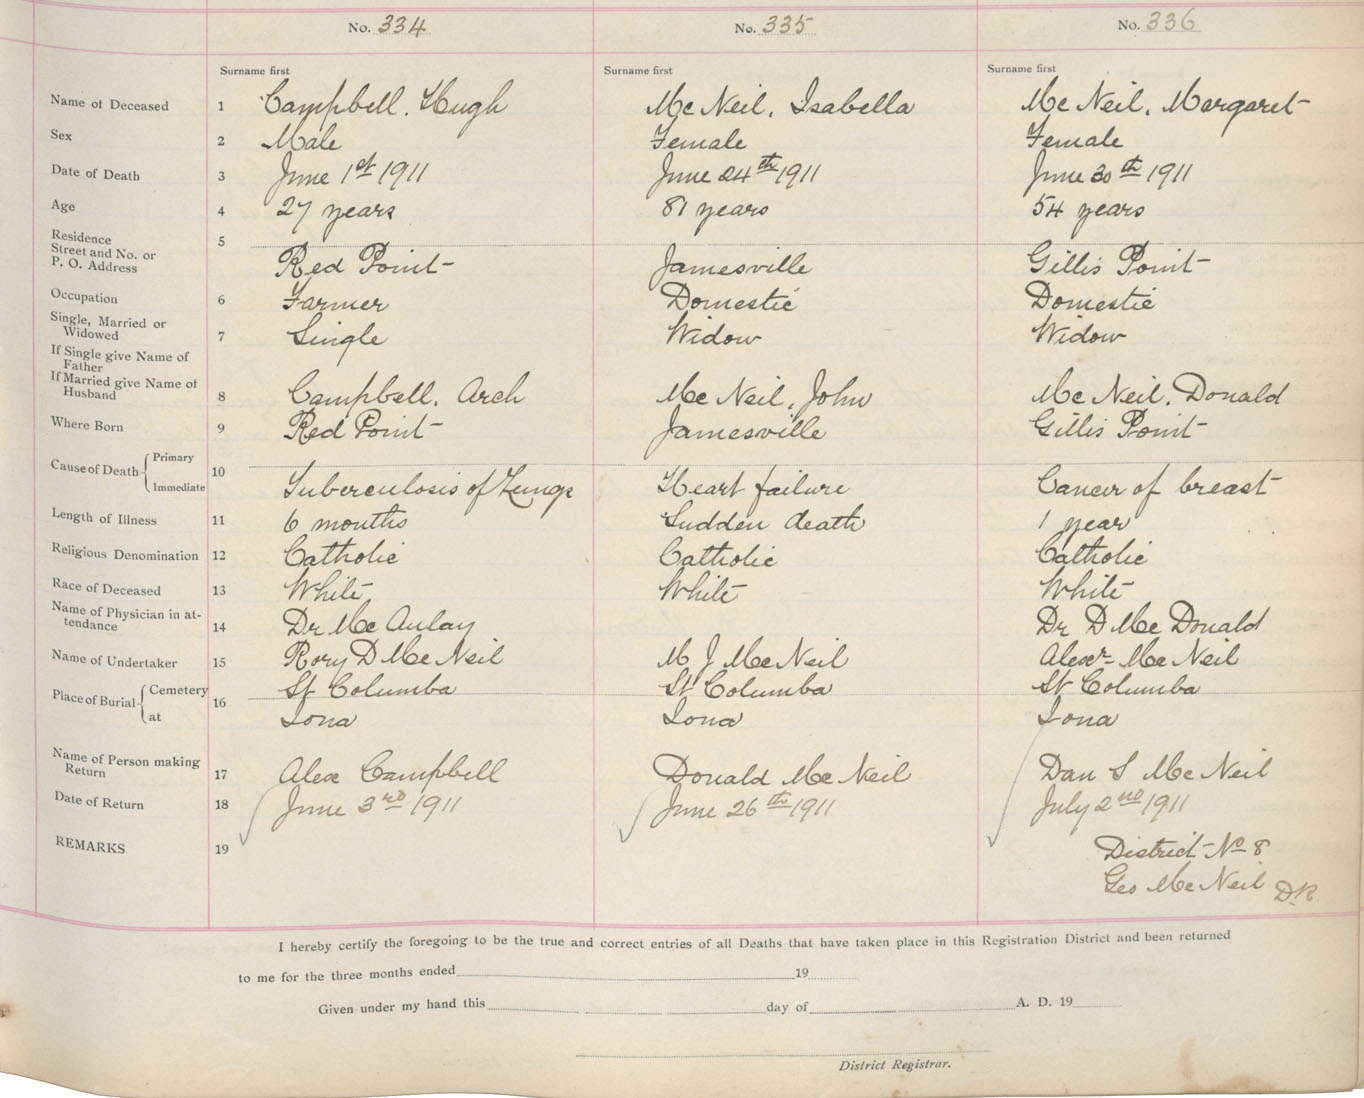 No. 334 No. 335 No. 336
Surname first Surname first Surname first
Name of Deceased 1 Campbell. Hugh Mc Neil, Isabella Mc Neil, Margaret
Sex 2 Male Female Female
Date of Death 3 June 1st 1911 June 24th 1911 June 30th 1911
Age 4 27 years 81 years 54 years
Residence 5
Street and No. or
P. O. Address Red Point Jamesville Gillis Point
Occupation 6 Farmer Domestic Domestic
Single, Married or
Widowed 7 Single Widow Widow
If Single give Name of
Father
If Married give Name of
Husband 8 Campbell, Arch Mc Neil, John Mc Neil, Donald
Where Born 9 Red Point Jamesville Gillis Point
Cause of Death Primary 10
Immediate Tuberculosis of Lungs Heart failure Cancer of breast
Length of Illness 11 6 months Sudden death 1 year
Religious Denomination 12 Catholic Catholic Catholic
Race of Deceased 13 White White White
Name of Physician in at-
tendance 14 Dr Mc Aulay Dr D Mc Donald
Name of Undertaker 15 Rory D Mc Neil M J Mc Neil Alexr Mc Neil
Place of Burial Cemetery 16 St Columba St Columba St Columba
at Iona Iona Iona
Name of Person making
Return 17 Alex Campbell Donald Mc Neil Dan S Mc Neil
Date of Return 18 June 3rd 1911 June 26th 1911 July 2nd 1911
REMARKS 19 District No 8
Geo Mc Neil D.R.
I hereby certify the foregoing to be the true and correct entries of all Deaths that have taken place in this Registration District and been returned
to me for the three months ended 19
Given under my hand this day of A. D. 19
District Registrar.